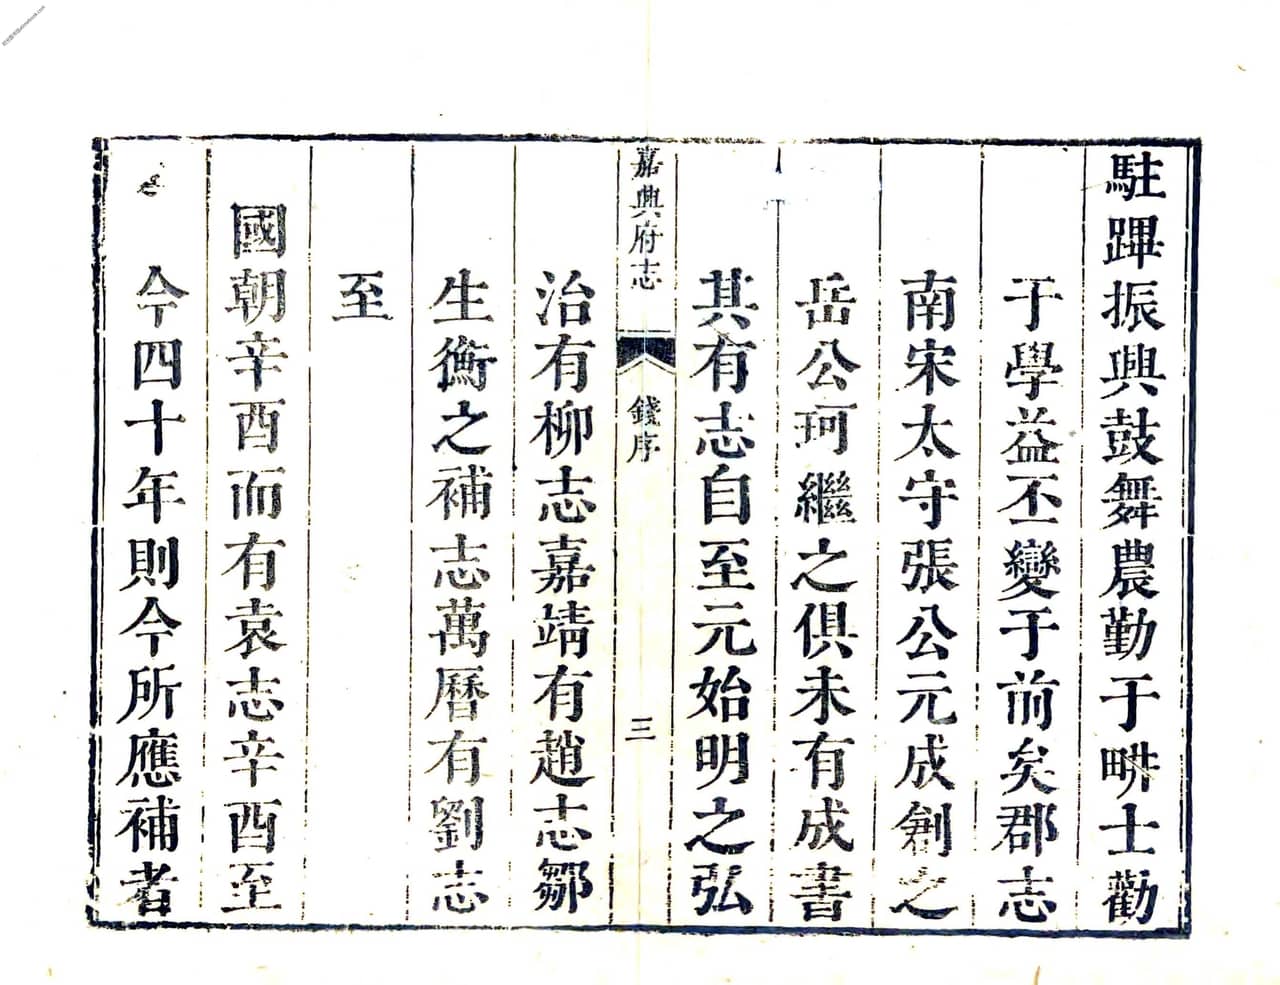 駐蹕振興鼓舞農勤于畊士勸
于學益丕變于前矣郡志
南宋太守張公元成創之
岳公珂繼之俱未有成書
其有志自至元始明之弘
嘉興府志 錢序 三
治有柳志嘉靖有趙志鄒
生衡之補志萬曆有劉志
至
國朝辛酉而有袁志辛酉至
今四十年則今所應補者